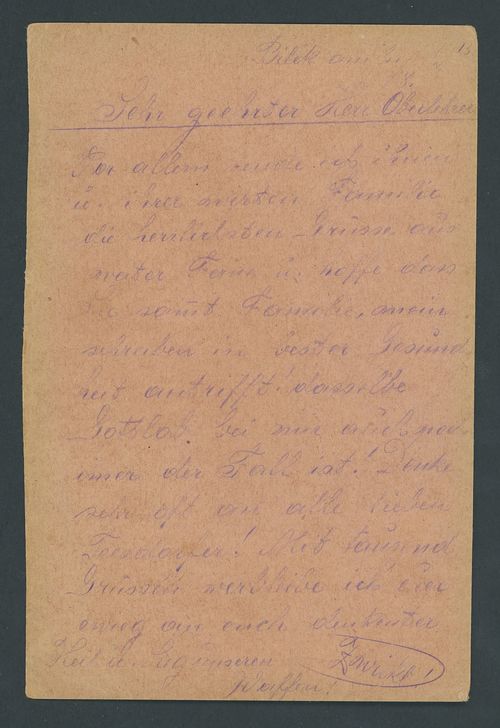 Bilek am
Sehr geehrter Herr Oberlehrer
Vor allem sende ich ihnen
u. ihrer werten Familie
die herrlichsten Grüsse aus
weiter Ferne u. hoffe dass
Sie samt Familie, mein
schreiben in bester Gesund
heit antrifft! dasselbe
Gotslob bei mir auch noch
imer der Fall ist! Denke
sehr oft an alle lieben
Teesdorfer! Mit tausend
Grüssen verbleibe ich euer
ewieg an euch denkenter
Heil u. Sieg unseren
Waffen!